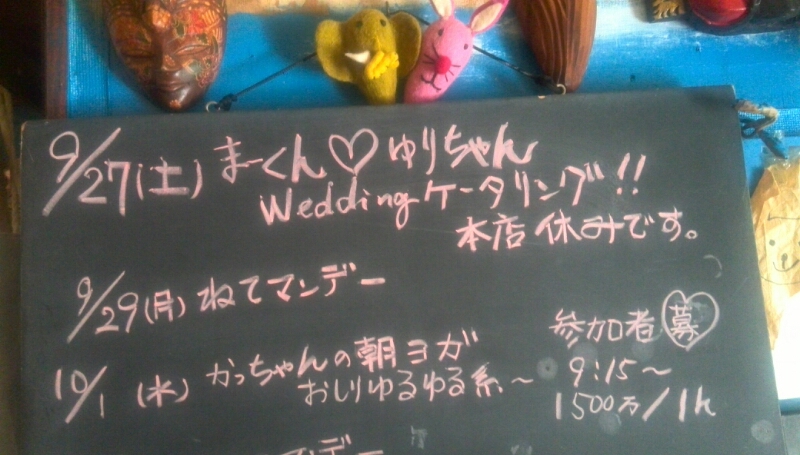 9/27(土) まーくん♡ゆりちゃん
Weddingケータリング!!
本店 休みです。
9/29(月) ねてマンデー
10/1 (水) かっちゃんの朝ヨガ
おしりゆるゆる系〜
参加者 募
9:15〜
1500万/1h
マンデー